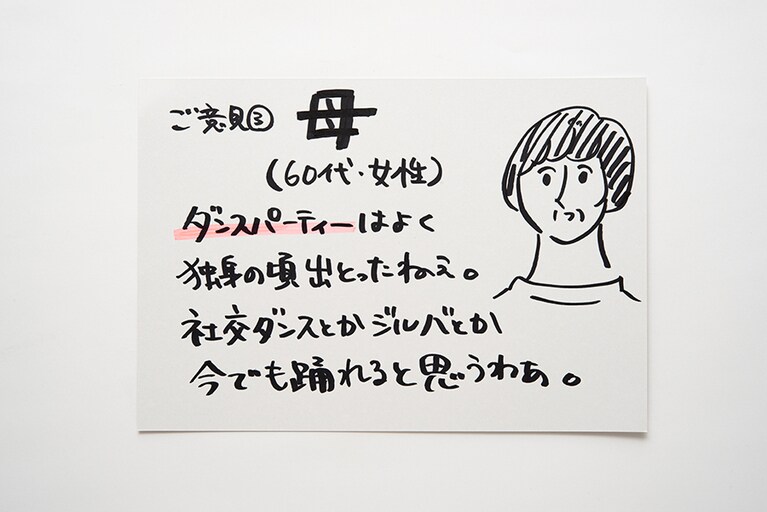 ご意見③ 母
(60代・女性)
ダンスパーティーはよく
独身の頃出とったねぇ。
社交ダンスとかジルバとか
今でも踊れると思うわぁ。